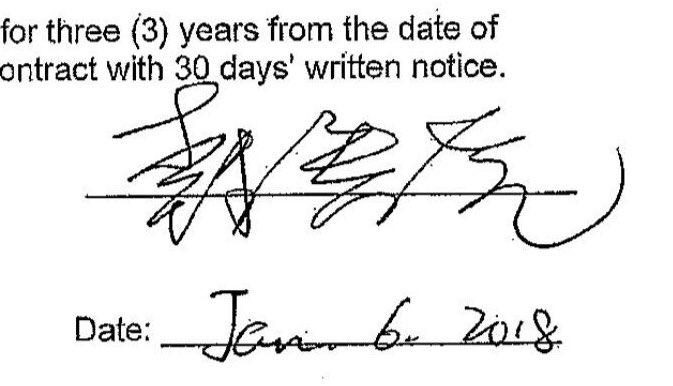 for three (3) years from the date of
ontract with 30 days' written notice.
Date: Jan. 6. 2018